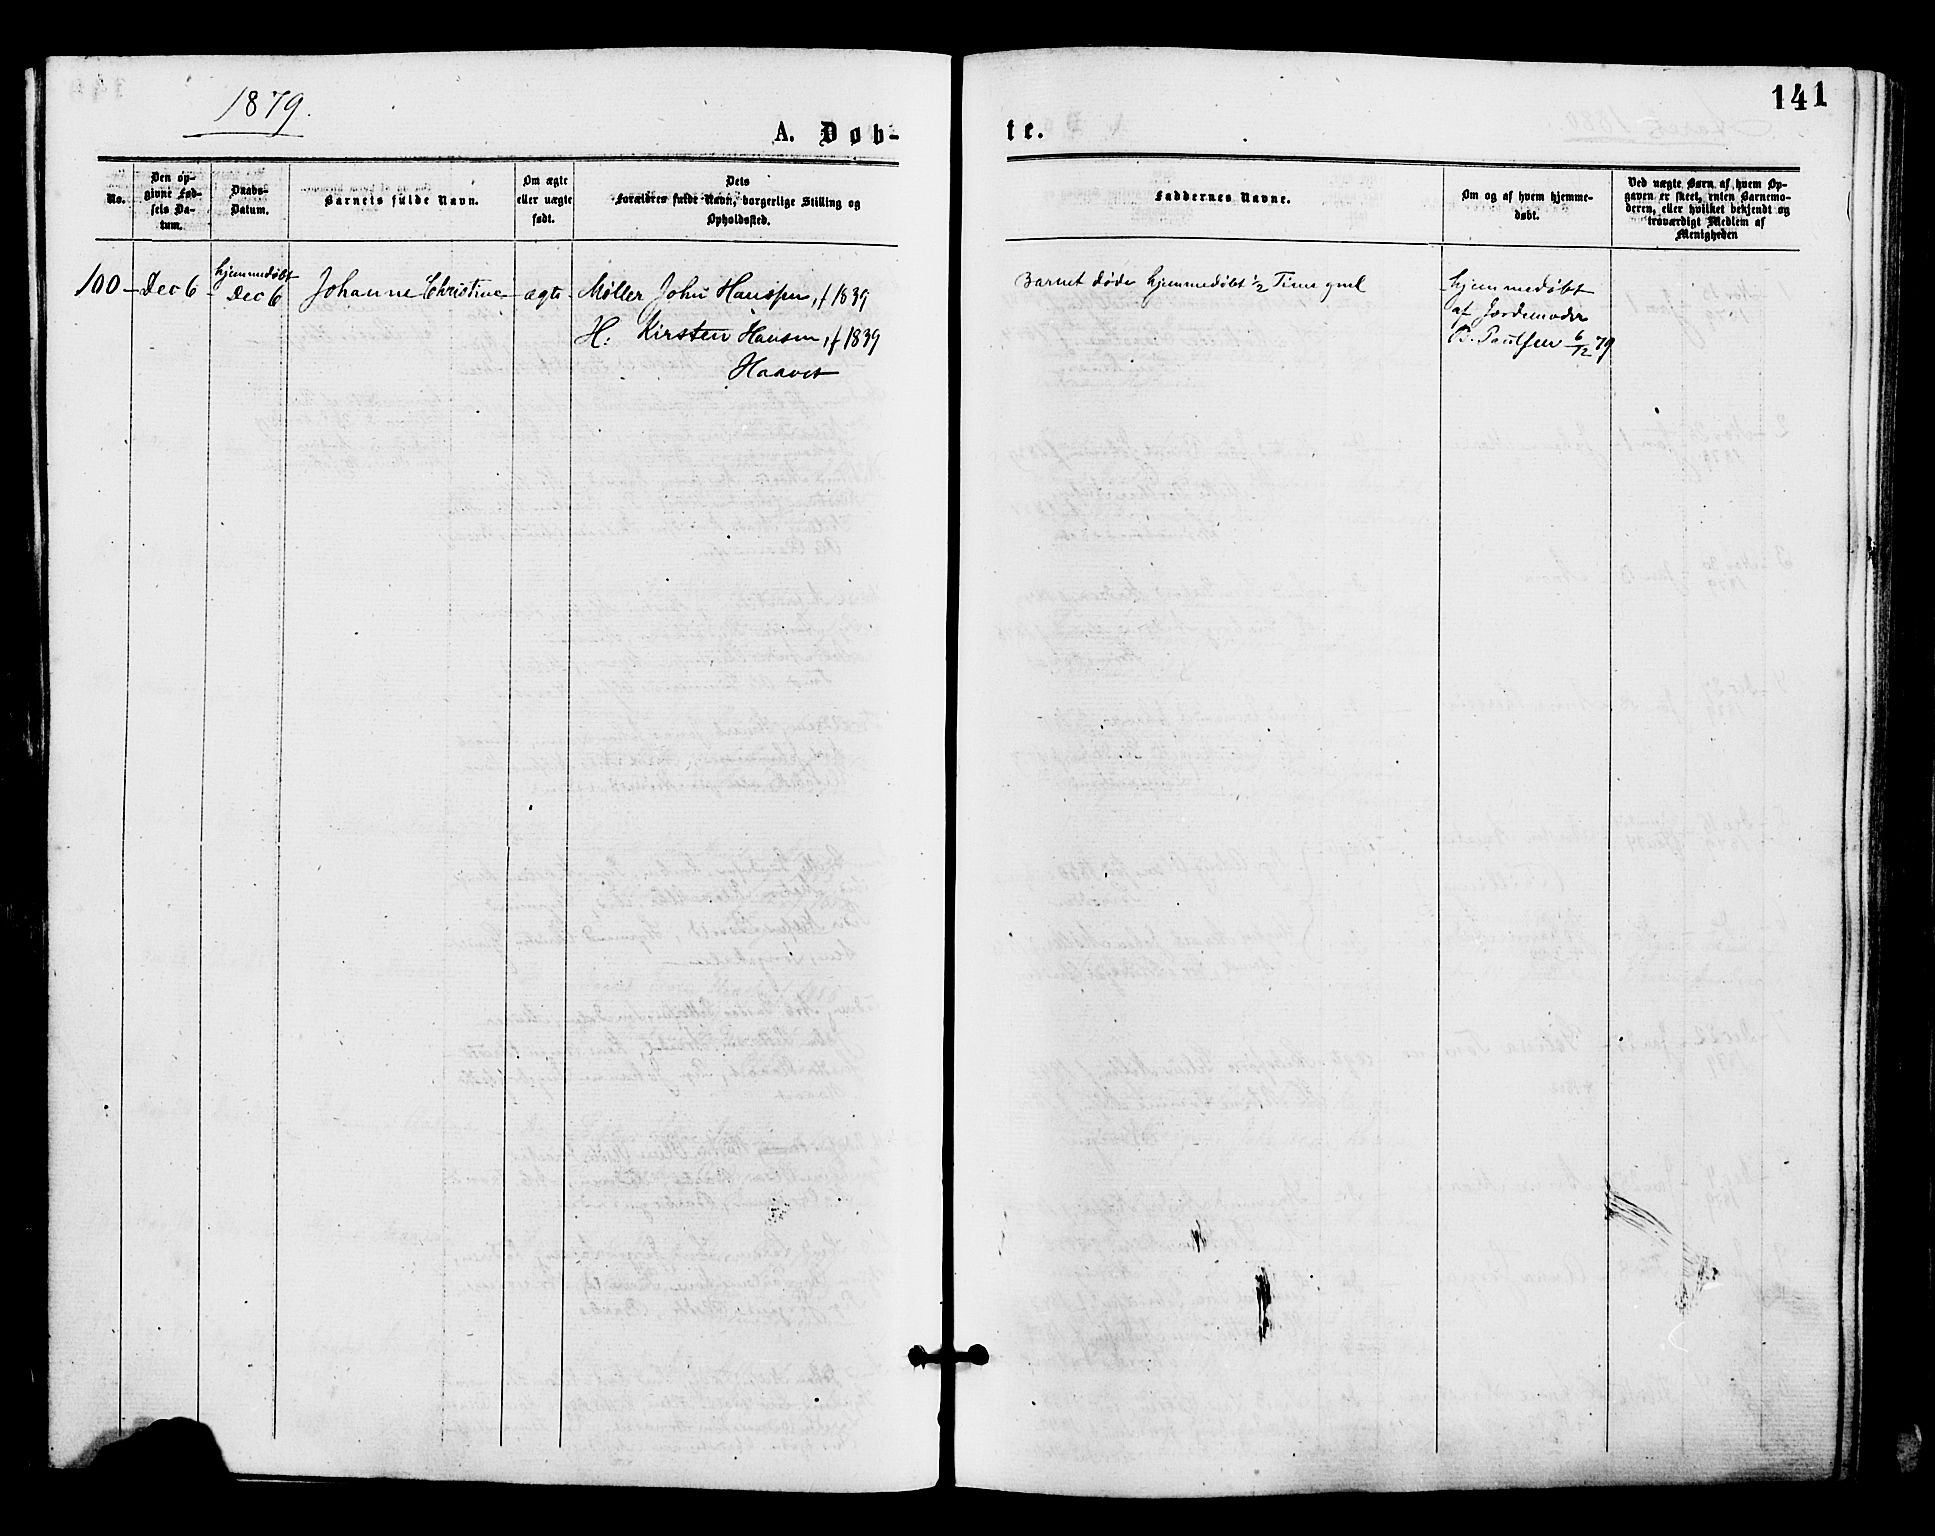 1879.
141
A. Døb-
te.
No.
Den op-
givne Fød-
sels Da-
tum.
Daabs-
Datum.
Barnets fulde Navn.
Om ægte
eller uægte
født.
Dets
Forældres fulde Navn, borgerlige Stilling og
Opholdssted.
Faddernes Navne.
Om og af hvem hjemme-
døbt.
Ved uægte Børn af hvem Op-
gaven er skeet, enten Barnemo-
deren, eller hvilket bekjendt og
troværdigt Medlem af
Menigheden
100 – Dec 6 – hjemmedøbt
Dec 6 – Johanne Christine – ægte – Møller John Hanssen, f 1839
H: Kirsten Hansen, f 1839
Haavet
Barnet døde hjemmedøbt ½ Time gml
hjemmedøbt
af Jordemoder
B. Paulsen 6/12 79